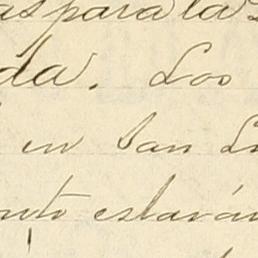 as para la
da. Los
en San Lu
nto estarán